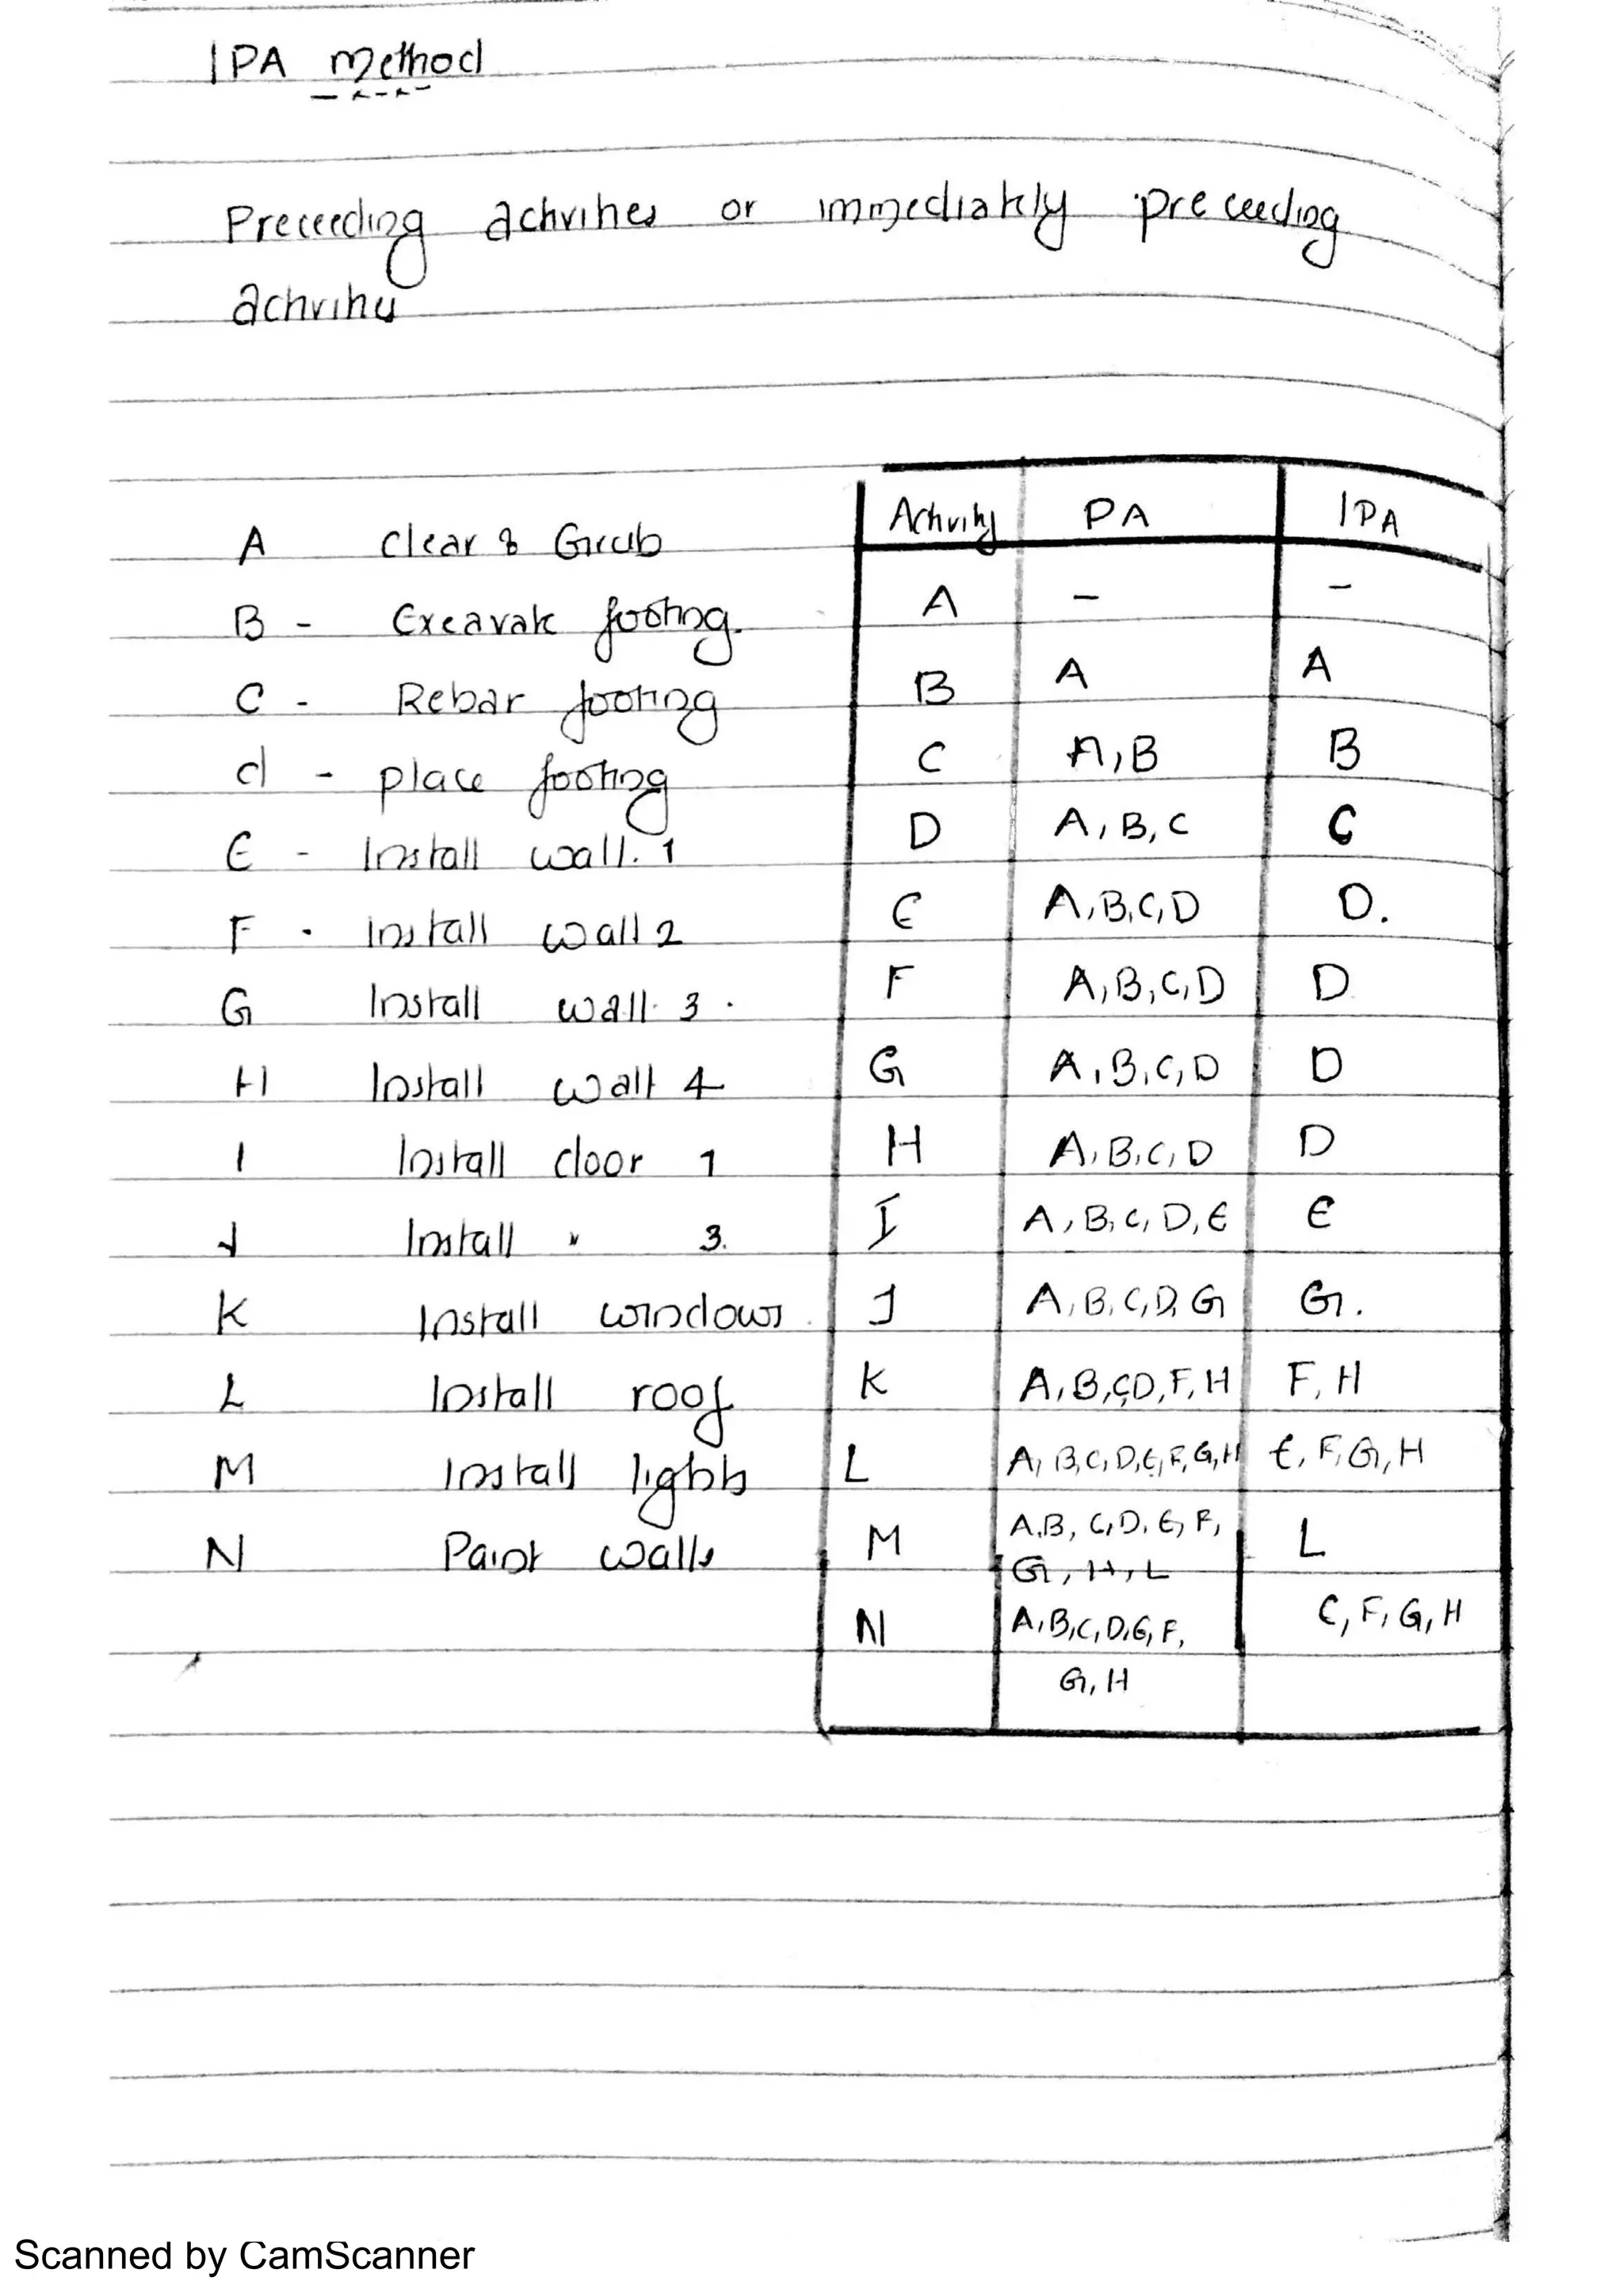 IPA method
Preceeding activities or immediately preceeding
activity
A Clear & Grub
B - Excavate footing.
C - Rebar footing
d - place footing
E - Install wall. 1
F - Install wall 2
G Install wall 3.
H Install wall 4
I Install door 1
J Install " 3.
K Install windows
L Install roof
M Install lights
N Paint walls
Activity PA IPA
A - -
B A A
C A,B B
D A,B,C C
E A,B,C,D D.
F A,B,C,D D
G A,B,C,D D
H A,B,C,D D
I A,B,C,D,E E
J A,B,C,D,G G.
K A,B,C,D,F,H F,H
L A,B,C,D,E,F,G,H E,F,G,H
M A,B,C,D,E,F, L
G,H,L
N A,B,C,D,G,F, C,F,G,H
G,H
Scanned by CamScanner